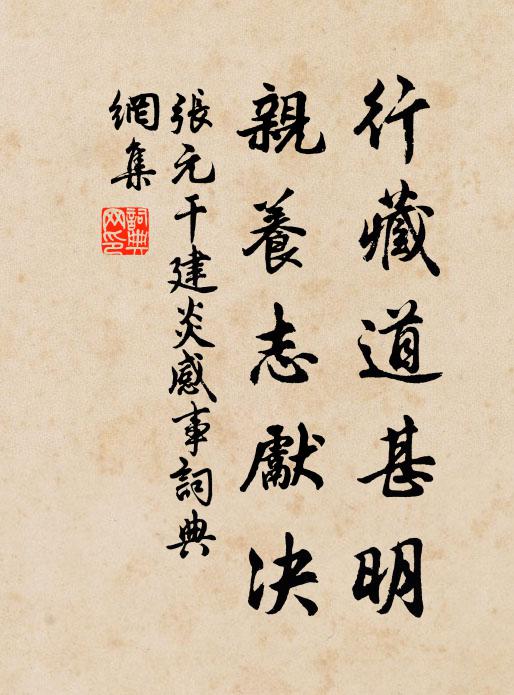 行藏道甚明
親養志獻决
張元干建炎感事詞典
網集
詞典網印